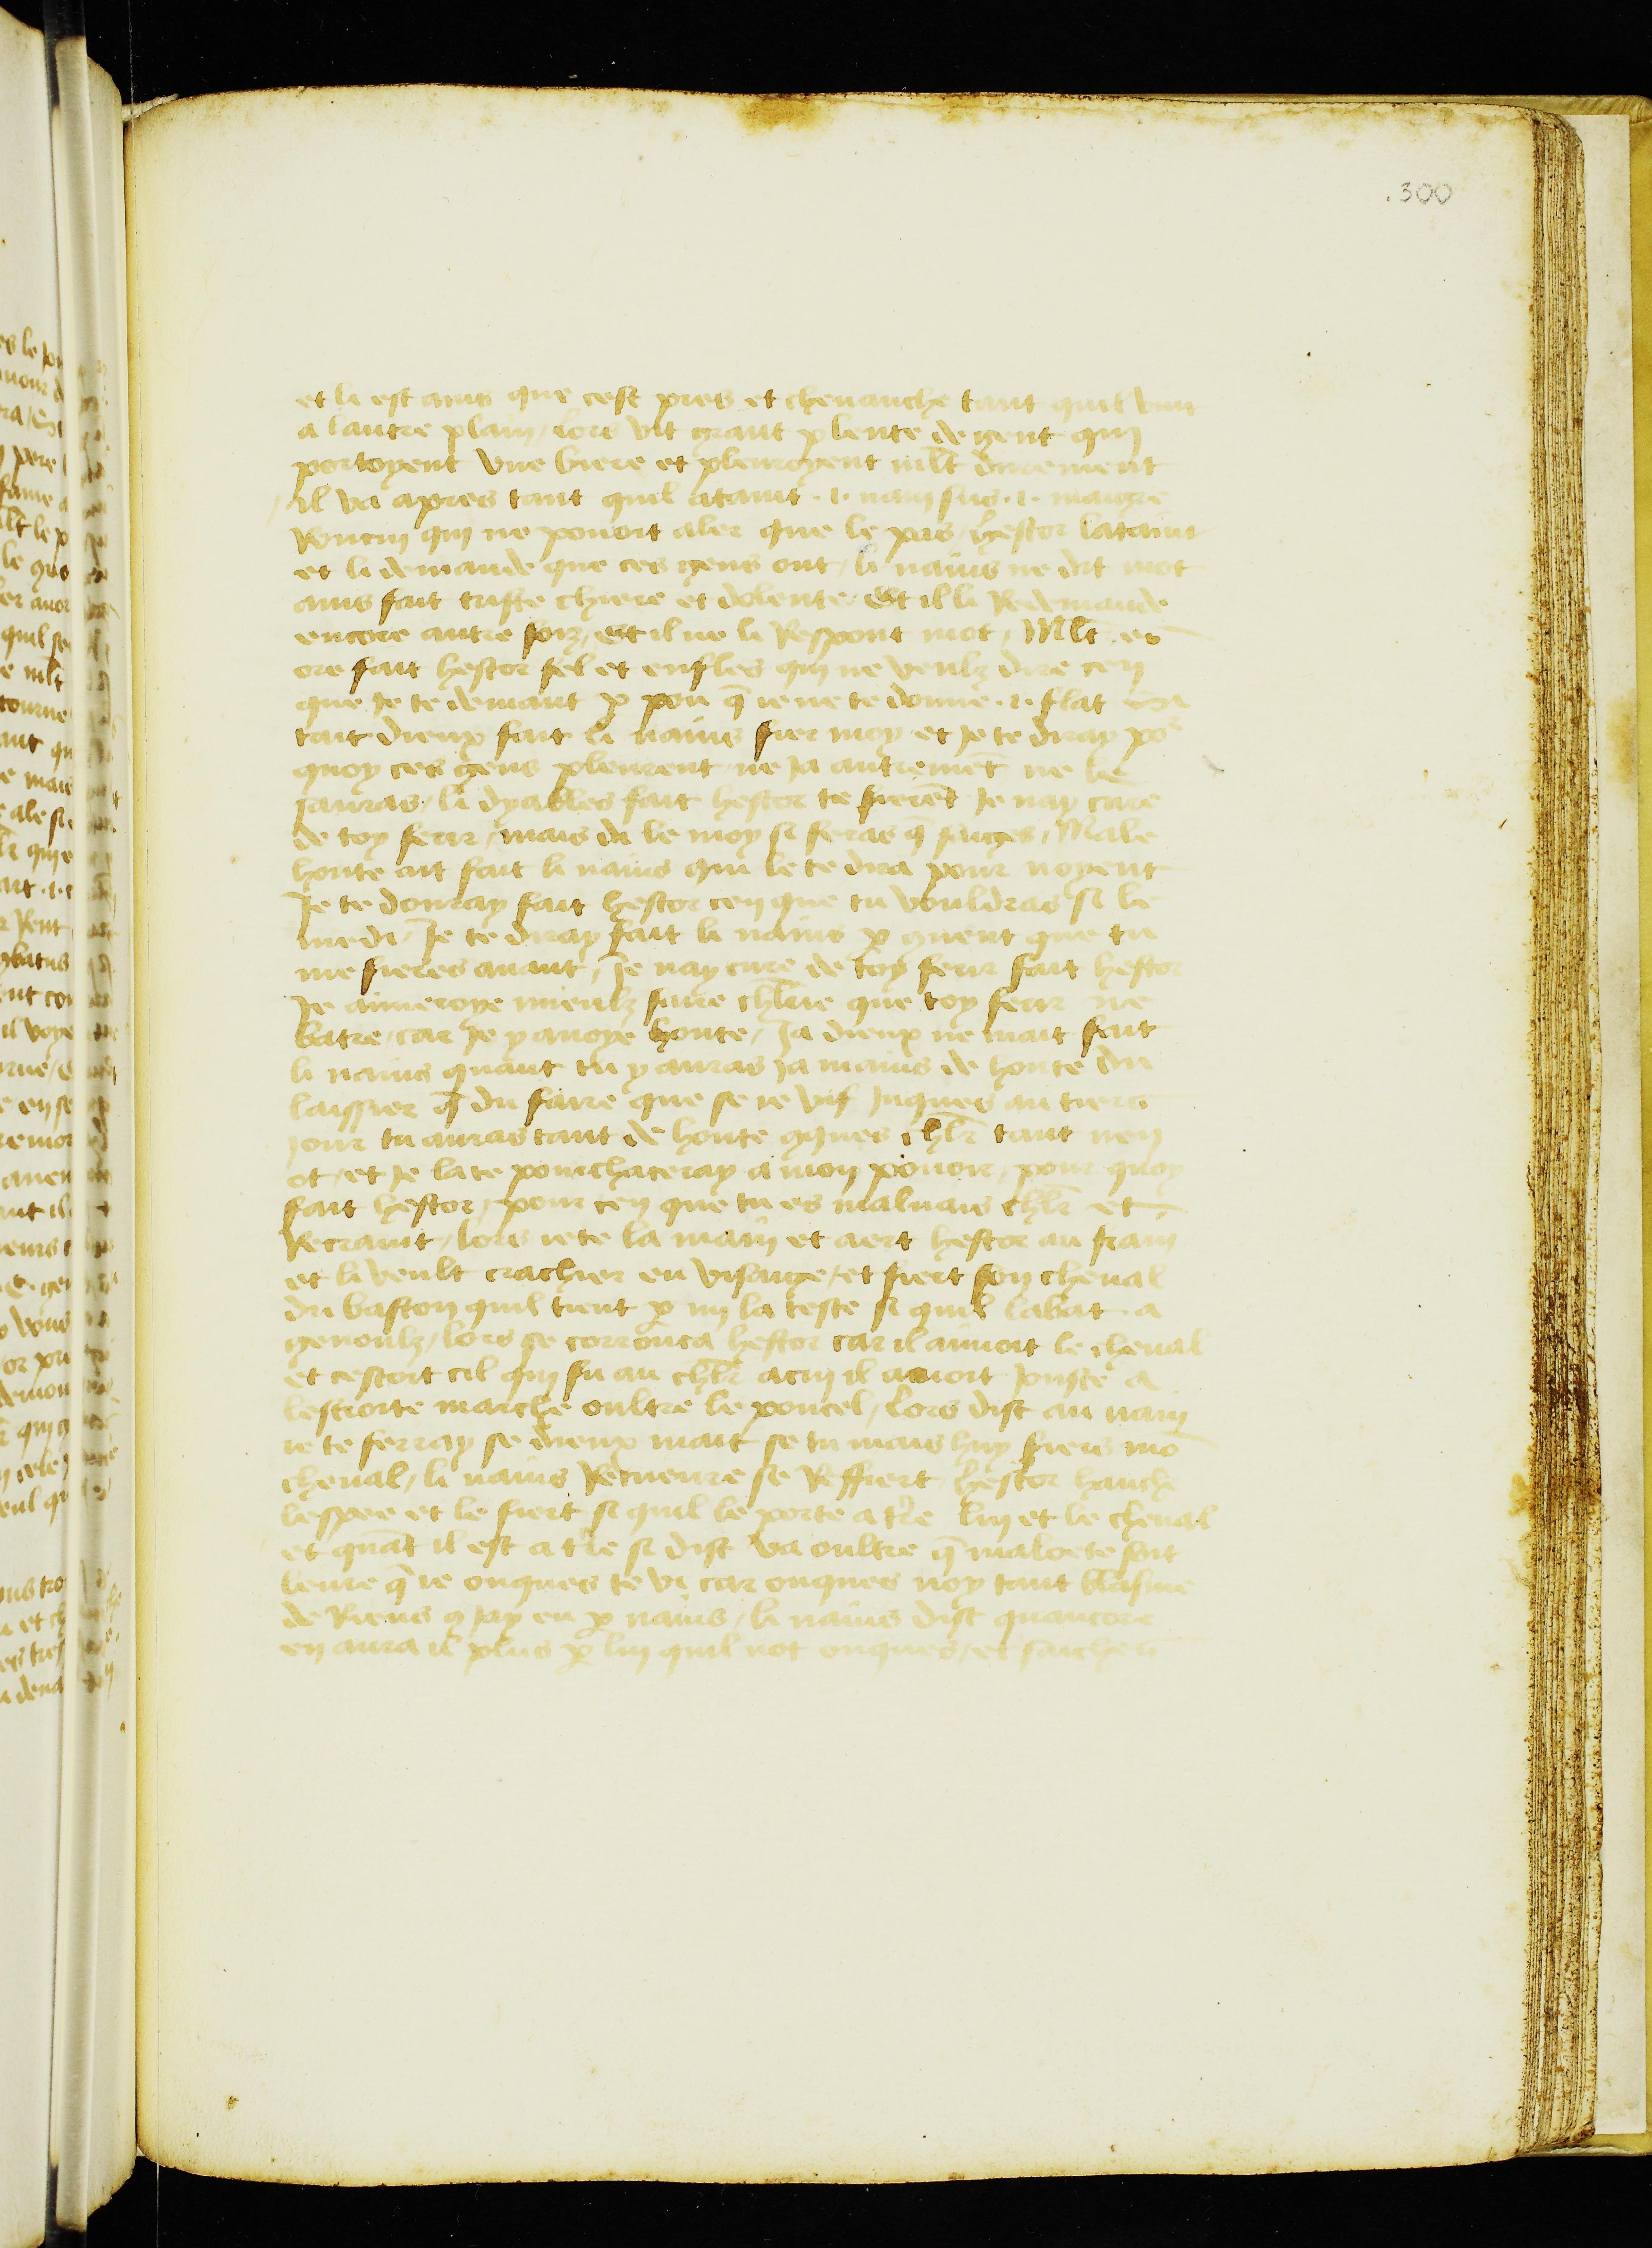 .300
et li est auis que cest pres et cheuauche tant quil vint
a lautre plain / lors vit grant plente de gent qui
portoyent vne biere et pleuroyent mlt durement
/ il va apres tant quil ataint .i. nain sus .i. maigre
Roncin qui ne pouoit aler que le pas / hestor lataint
et li demande que ces gens ont / li nains ne dit mot
ains fait triste chiere et dolente / Et il li Redemande
encore autre foiz / et il ne li Respont mot / Mlt es
ore fait hestor fel et enfles qui ne veulz dire cen
que Je te demant p pou q̄ ie ne te donne .i. flat
tait dieux fait li nains fier moy et Je te diray po
quoy ces gens pleurent / ne Ja autremēt ne le
sauras / li dyables fait hestor te fierēt Je nay cure
de toy ferir / mais di le moy si feras q̄ saiges / Male
honte ait fait li nains qui le te dira pour noyent
Je te donray fait hestor cen que tu vouldras si le
me di / Je te diray fait li nains p quent que tu
me fieres auant / Je nay cure de toy ferir fait hestor
Je aimeroye mieulz faire chlrie que toy ferir ne
batre / car Je y auoye honte / Ja dieux ne mait fait
li nains quant tu y auras Ja mains de honte du
laissier q̄ du faire que se ie vif Juques au tiers
jour tu auras tant de honte qques chlr tant nen
ot / et Je la te pourchaceray a mon pouoir / pour quoy
fait hestor / pour cen que tu es maluais chlr et
Recraint / lors iete la main et aert hestor au frain
et li veult crachier en visaige / et fiert son cheual
du baston quil tient p my la teste si quil labat a
genoulz / lors se corronca hestor car il aimoit le cheual
et cestoit cil qui fu au chlr a cui il auoit Jouste a
lestroite marche oultre le poncel / Lors dist au nain
ie te ferray se dieux mait se tu mais huy fiers mō
cheual / li nains Recueuure se Reffiert / hestor hauche
lespee et le fiert si quil le porte a tr̄e luy et le cheual
et quāt il est a tr̄e si dist va oultre q̄ maloete soit
leure q̄ ie onques te vi car onques noy tant blasme
de Riens q Jay eu p nains / li nains dist quancore
en aura il plus p luy quil not onques / et saichen